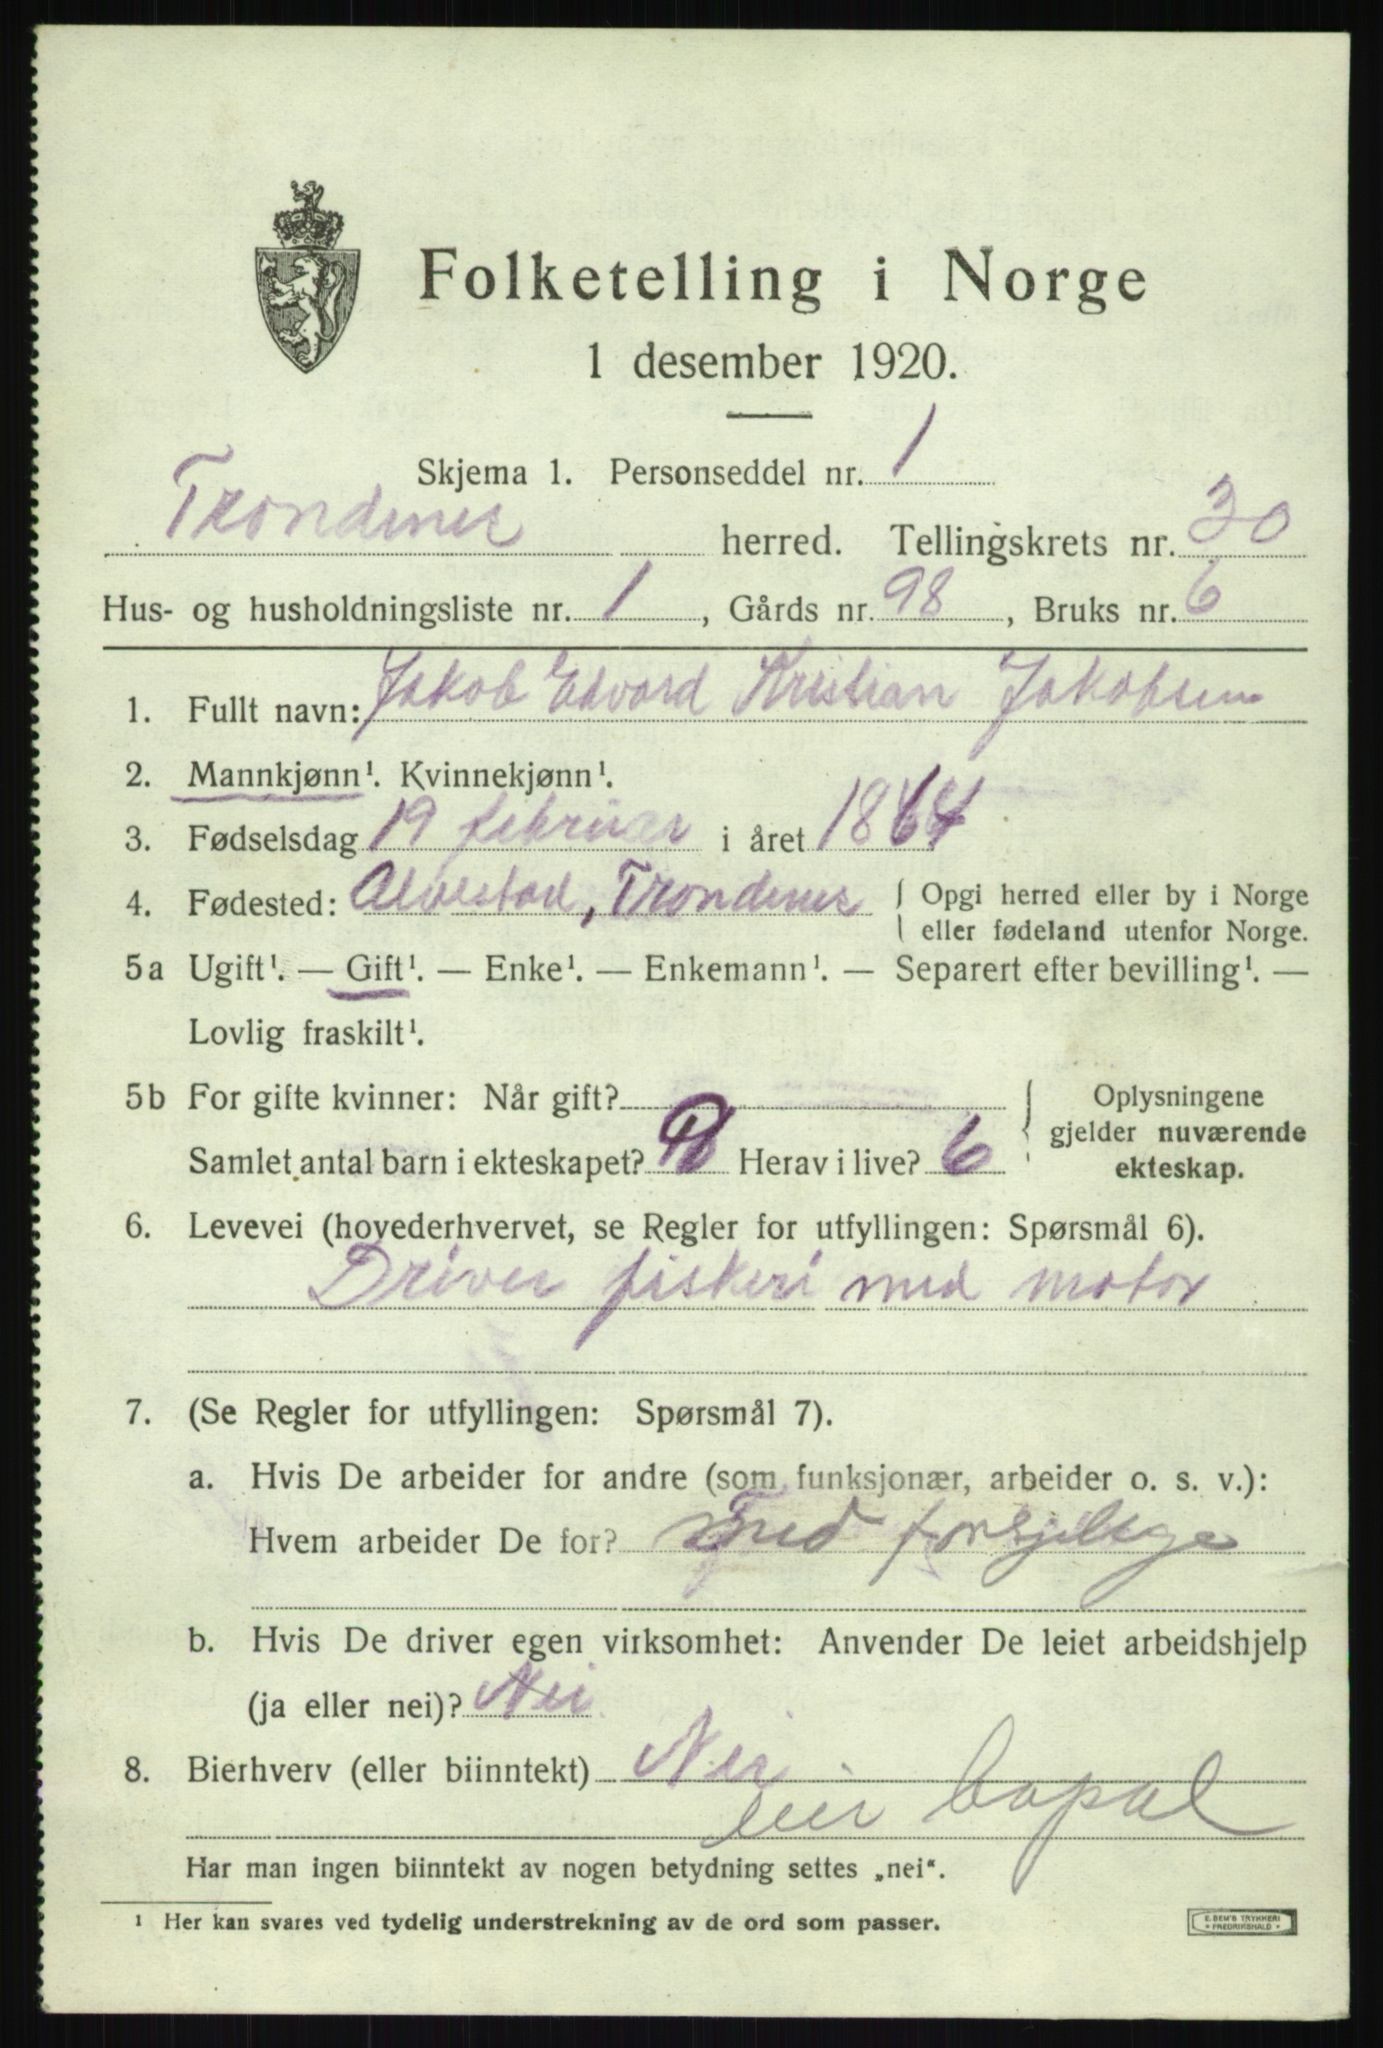 Folketelling i Norge
1 desember 1920.
Skjema 1. Personseddel nr. 1
Trondenes herred. Tellingskrets nr. 30
Hus- og husholdningsliste nr. 1, Gårds nr. 98, Bruks nr. 6
1. Fullt navn: Jakob Edvard Kristian Jakobsen
2. Mannkjønn¹. Kvinnekjønn¹.
3. Fødselsdag 19 februar i året 1864
4. Fødested: Alvestad, Trondenes { Opgi herred eller by i Norge
eller fødeland utenfor Norge.
5a Ugift¹. — Gift¹. — Enke¹. — Enkemann¹. — Separert efter bevilling¹. —
Lovlig fraskilt¹.
5b For gifte kvinner: Når gift? { Oplysningene
gjelder nuværende
ekteskap.
Samlet antal barn i ekteskapet? Herav i live? 6
6. Levevei (hovederhvervet, se Regler for utfyllingen: Spørsmål 6).
Driver fiskeri med motor
7. (Se Regler for utfyllingen: Spørsmål 7).
a. Hvis De arbeider for andre (som funksjonær, arbeider o. s. v.):
Hvem arbeider De for?
b. Hvis De driver egen virksomhet: Anvender De leiet arbeidshjelp
(ja eller nei)? Nei
8. Bierhverv (eller biinntekt) Nei
Har man ingen biinntekt av nogen betydning settes „nei“.
¹ Her kan svares ved tydelig understrekning av de ord som passer.
E. BEM'S TRYKKERI
• FREDRIKSHALD •